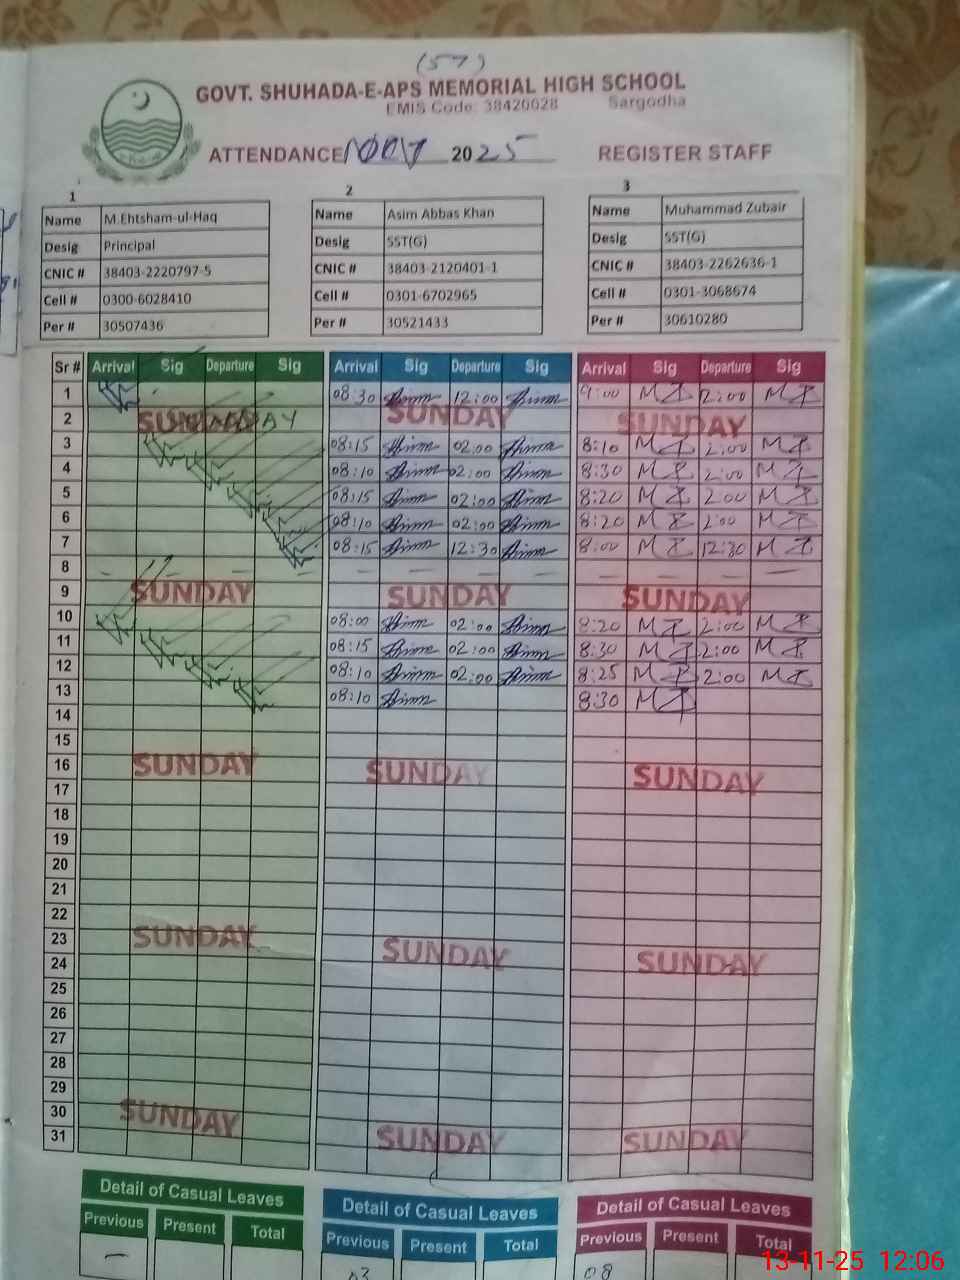 (57)
GOVT. SHUHADA-E-APS MEMORIAL HIGH SCHOOL
EMIS Code: 38420028 Sargodha
ATTENDANCE NOV 2025 REGISTER STAFF
1 2 3
Name M.Ehtsham-ul-Haq Name Asim Abbas Khan Name Muhammad Zubair
Desig Principal Desig SST(G) Desig SST(G)
CNIC # 38403-2220797-5 CNIC # 38403-2120401-1 CNIC # 38403-2262636-1
Cell # 0300-6028410 Cell # 0301-6702965 Cell # 0301-3068674
Per # 30507436 Per # 30521433 Per # 30610280
Sr # Arrival Sig Departure Sig Arrival Sig Departure Sig Arrival Sig Departure Sig
1 08:30 12:00 9:00 MZ 2:00 MZ
2 SUNDAY SUNDAY SUNDAY
3 08:15 02:00 8:10 MZ 2:00 MZ
4 08:10 02:00 8:30 MZ 2:00 MZ
5 08:15 02:00 8:20 MZ 2:00 MZ
6 08:10 02:00 8:20 MZ 2:00 MZ
7 08:15 12:30 8:00 MZ 12:30 MZ
8
9 SUNDAY SUNDAY SUNDAY
10 08:00 02:00 8:20 MZ 2:00 MZ
11 08:15 02:00 8:30 MZ 2:00 MZ
12 08:10 02:00 8:25 MZ 2:00 MZ
13 08:10 8:30 MZ
14
15
16 SUNDAY SUNDAY SUNDAY
17
18
19
20
21
22
23 SUNDAY SUNDAY SUNDAY
24
25
26
27
28
29
30 SUNDAY SUNDAY SUNDAY
31
Detail of Casual Leaves Detail of Casual Leaves Detail of Casual Leaves
Previous Present Total Previous Present Total Previous Present Total
03 08
13-11-25 12:06